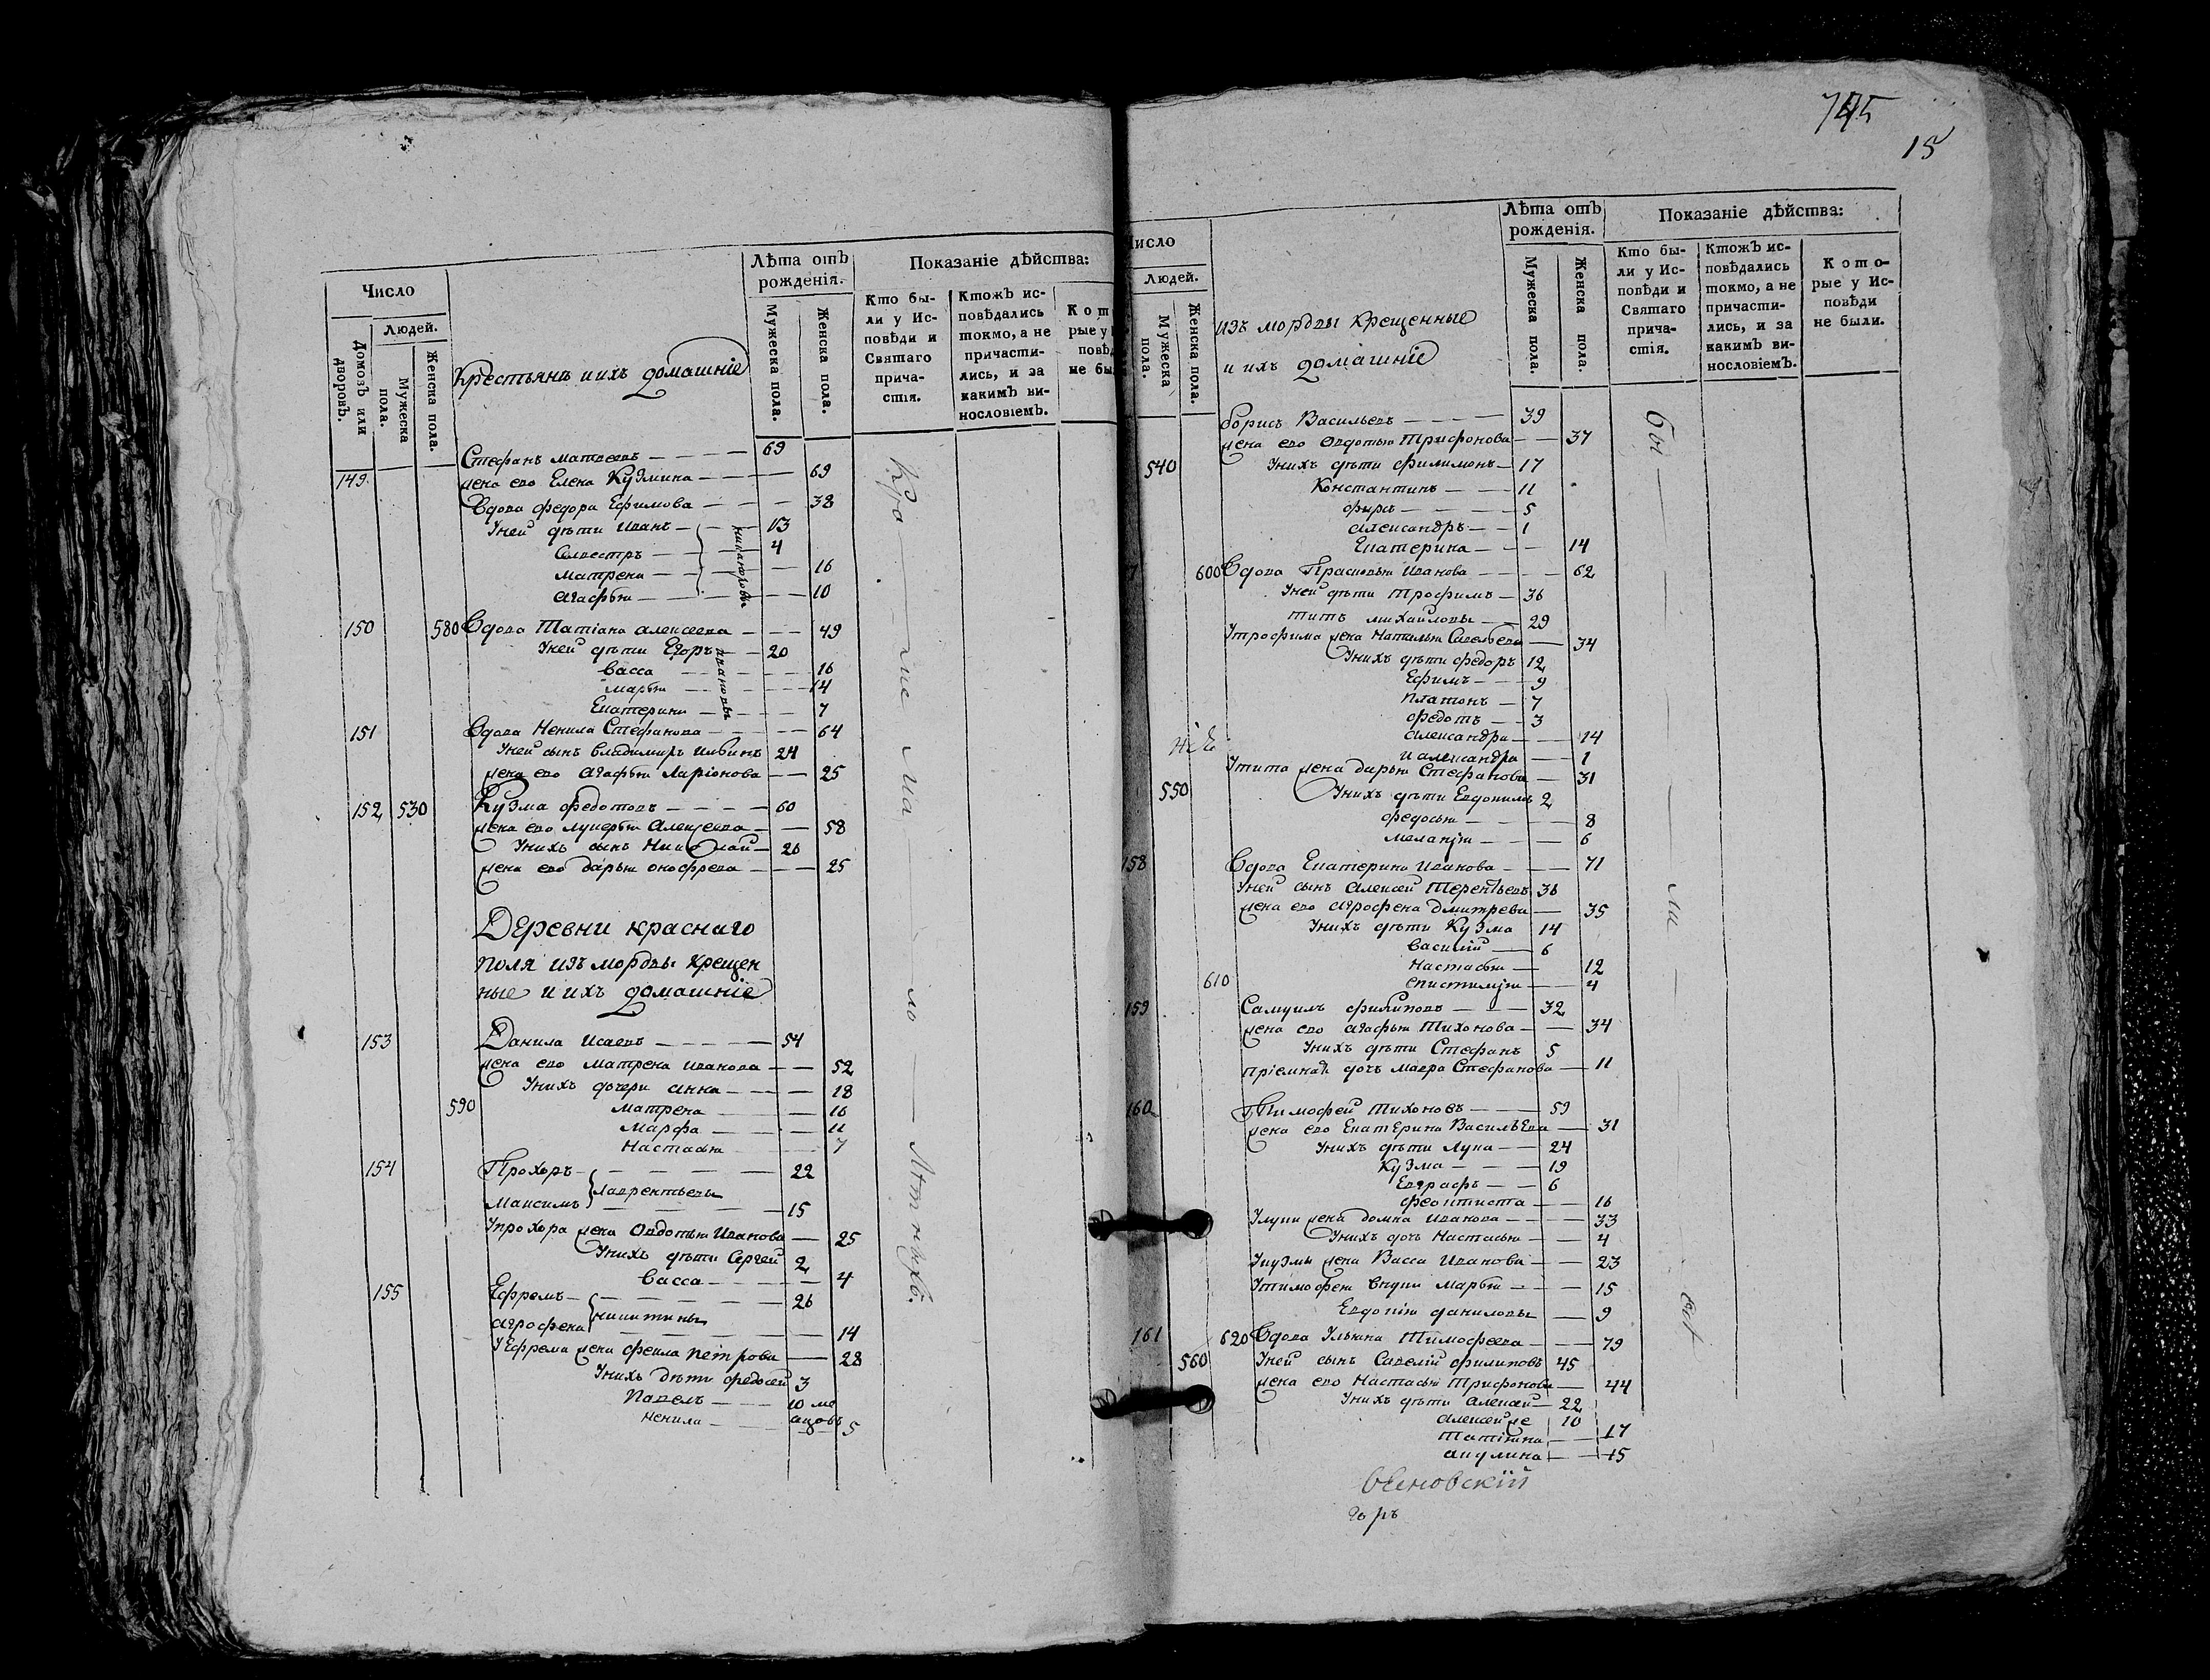 Число
Людей.
Домовъ или дворовъ.
Мужеска пола.
Женска пола.
Крестьянъ и ихъ домашніе
Лѣта отъ рожденія.
Мужеска пола.
Женска пола.
Показаніе дѣйства:
Кто были у Исповѣди и Святаго причастія.
Ктожъ исповѣдались токмо, а не причастились, и за какимъ винословіемъ.
Кото
рые у
повѣ
не бы
Стефанъ Матвеевъ — 69
149 жена ево Елена Кузмина — 69
Вдова Федора Ефимова — 38
Уней дѣти Иванъ — 13
Селвестръ — 4
Матрена — 16
Агафья — 10
никаноровы
150 580 Вдова Татіана Алексеева — 49
Уней дѣти Егоръ — 20
Васса — 16
Марья — 14
Екатерина — 7
ивановы
151 Вдова Ненила Стефанова — 64
Уней сынъ Владимиръ Ильинъ 24
жена ево Агафья Ларіонова — 25
152 530 Кузма Федотовъ — 60
жена ево Лукерья Алексеева — 58
Унихъ сынъ Николай — 26
жена ево Дарья Онофрева — 25
Деревни краснаго
поля изъ мордвы крещен
ные и ихъ домашніе
153 Данила Исаевъ — 54
жена ево Матрена Иванова — 52
Унихъ дочери Анна — 18
590 Матрена — 16
Марфа — 11
Настасья — 7
154 Прохоръ — 22
Лаврентьевы
Максимъ — 15
Упрохора жена Овдотья Иванова — 25
Унихъ дѣти Сергей 2
Васса — 4
155 Ефремъ — 26
никитины
Агрофена — 14
Уефрема жена Фекла Петрова — 28
Унихъ дѣти Федосей 3
Павелъ — 10 ме
сяцовъ
Ненила — 5
745
15
Число
Людей.
Мужеска пола.
Женска пола.
изъ мордвы крещенные
и ихъ домашніе
Лѣта отъ рожденія.
Мужеска пола.
Женска пола.
Показаніе дѣйства:
Кто были у Исповѣди и Святаго причастія.
Ктожъ исповѣдались токмо, а не причастились, и за какимъ винословіемъ.
Которые у Исповѣди не были.
Борисъ Васильевъ — 39
жена ево Овдотья Трифонова — 37
540 Унихъ дѣти Филимонъ — 17
Константинъ — 11
Фирсъ — 5
Александръ — 1
Екатерина — 14
7 600 Вдова Прасковья Иванова — 62
Уней дѣти Трофимъ — 36
Титъ Михайловы — 29
Утрофима жена Наталья Савельева — 34
Унихъ дѣти Федоръ 12
Ефимъ — 9
Платонъ — 7
Федотъ — 3
Александра — 14
и Александра — 1
Утита жена Дарья Стефанова — 31
550 Унихъ дѣти Евдокимъ 2
Федосья — 8
Меланья — 6
158 Вдова Екатерина Иванова — 71
Уней сынъ Алексей Терентьевъ 36
жена ево Агрофена Дмитрева — 35
Унихъ дѣти Кузма 14
Василій — 6
Настасья — 12
610 Епистимия — 4
159 Самуилъ Филиповъ — 32
жена ево Агафья Тихонова — 34
Унихъ дѣти Стефанъ 5
Пріемная дочь Мавра Стефанова — 11
160 Тимофей Тихоновъ — 59
жена ево Екатерина Васильева — 31
Унихъ дѣти Лука — 24
Кузма — 19
Евграфъ — 6
Феоктиста — 16
Улуки жена Домна Иванова — 33
Унихъ дочь Настасья — 4
Укузмы жена Васса Иванова — 23
Утимофея внуки Марья — 15
Евдокия Даниловы — 9
161 620 Вдова Ульяна Тимофеева — 79
560 Уней сынъ Савелій Филиповъ 45
жена ево Настасья Трифонова — 44
Унихъ дѣти Алексей — 22
Алексей же 10
Татіяна — 17
Акулина — 15